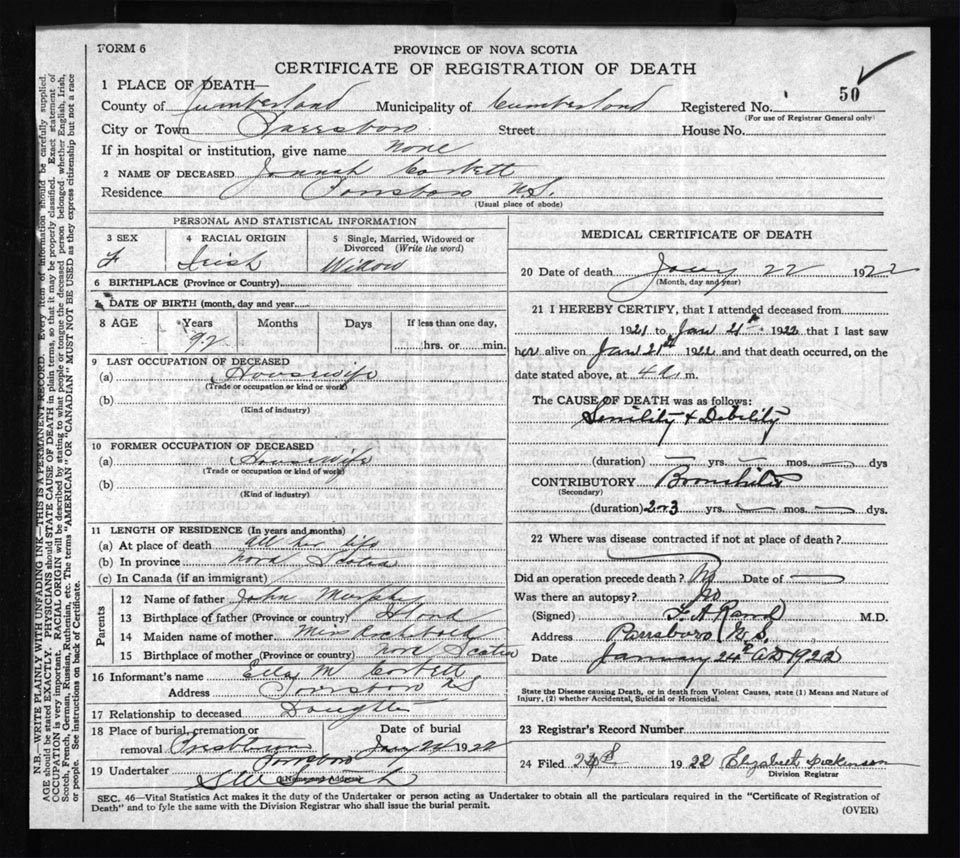 FORM 6
PROVINCE OF NOVA SCOTIA
CERTIFICATE OF REGISTRATION OF DEATH
50
1 PLACE OF DEATH—
County of Cumberland Municipality of Cumberland Registered No.
(For use of Registrar General only)
City or Town Parrsboro Street House No.
If in hospital or institution, give name none
2 NAME OF DECEASED Corbett
Residence Parrsboro N.S.
(Usual place of abode)
PERSONAL AND STATISTICAL INFORMATION
3 SEX 4 RACIAL ORIGIN 5 Single, Married, Widowed or Divorced (Write the word)
F Irish Widow
6 BIRTHPLACE (Province or Country)
7 DATE OF BIRTH (month, day and year)
8 AGE Years Months Days If less than one day,
92 hrs. or min.
9 LAST OCCUPATION OF DECEASED
(a) Housewife
(Trade or occupation or kind of work)
(b)
(Kind of industry)
10 FORMER OCCUPATION OF DECEASED
(a) Housewife
(Trade or occupation or kind of work)
(b)
(Kind of industry)
11 LENGTH OF RESIDENCE (In years and months)
(a) At place of death All her life
(b) In province Nova Scotia
(c) In Canada (if an immigrant)
Parents
12 Name of father John Murphy
13 Birthplace of father (Province or country)
14 Maiden name of mother Miss
15 Birthplace of mother (Province or country) Nova Scotia
16 Informant's name Ellen M Corbett
Address Parrsboro NS
17 Relationship to deceased Daughter
18 Place of burial, cremation or Date of burial
removal Parrsboro Jany 24 1922
19 Undertaker
(Name and Address)
MEDICAL CERTIFICATE OF DEATH
20 Date of death Jany 22 1922
(Month, day and year)
21 I HEREBY CERTIFY, that I attended deceased from
1921 to Jan 21st 1922 that I last saw
her alive on Jan 21st 1922 and that death occurred, on the
date stated above, at 4 a. m.
The CAUSE OF DEATH was as follows:
Senility & Debility
(duration) — yrs. — mos. — dys
CONTRIBUTORY Bronchitis
(Secondary)
(duration) 2 or 3 yrs. — mos. — dys.
22 Where was disease contracted if not at place of death?
Did an operation precede death? No Date of —
Was there an autopsy? No
(Signed) F. A. Rand M.D.
Address Parrsboro N.S.
Date January 24th A.D 1922
State the Disease causing Death, or in death from Violent Causes, state (1) Means and Nature of
Injury, (2) whether Accidental, Suicidal or Homicidal.
23 Registrar's Record Number
24 Filed 24th 1922 Elizabeth Dickinson
Division Registrar
SEC. 46—Vital Statistics Act makes it the duty of the Undertaker or person acting as Undertaker to obtain all the particulars required in the "Certificate of Registration of
Death" and to fyle the same with the Division Registrar who shall issue the burial permit.
(OVER)
N.B.—WRITE PLAINLY WITH UNFADING INK—THIS IS A PERMANENT RECORD. Every item of information should be carefully supplied.
AGE should be stated EXACTLY. PHYSICIANS should STATE CAUSE OF DEATH in plain terms, so that it may be properly classified. Exact statement of
OCCUPATION is very important. RACIAL ORIGIN will be described by stating to what people or tongue the deceased person belonged whether English, Irish,
Scotch, French, German, Russian, Ruthenian, etc. The terms "AMERICAN" OR "CANADIAN" MUST NOT BE USED as they express citizenship but not a race
or people. See instructions on back of Certificate.